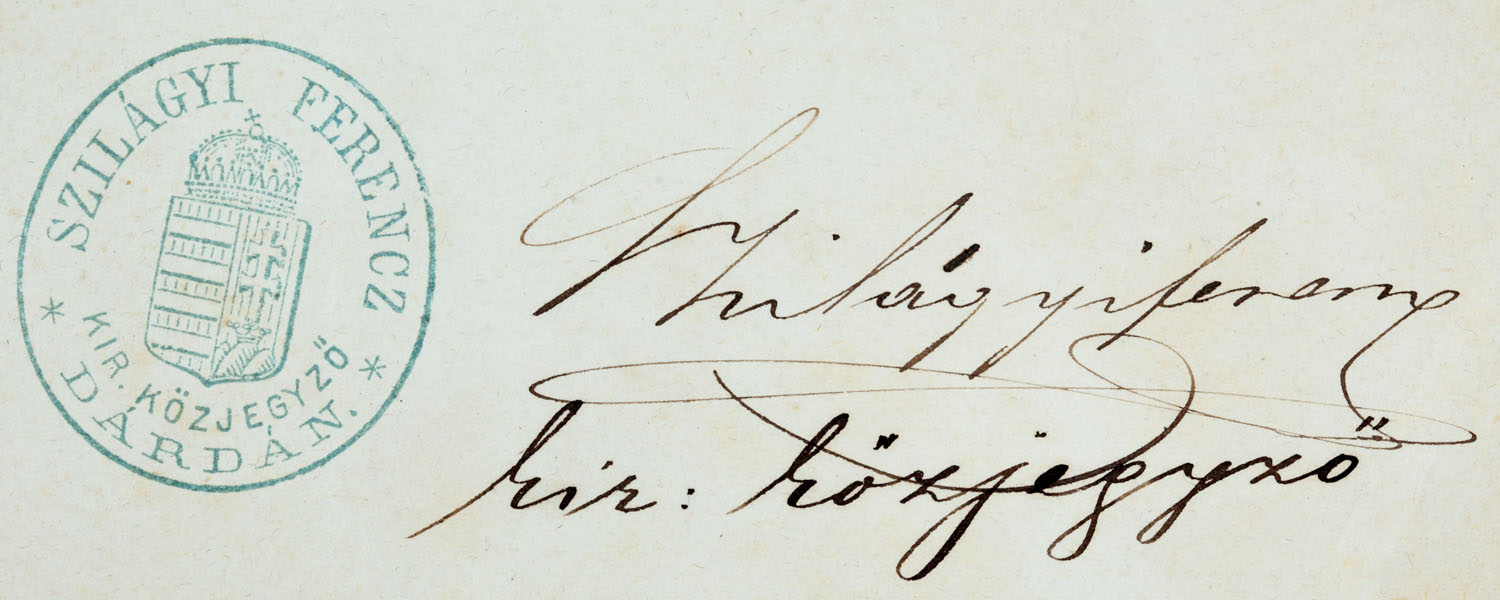 SZILÁGYI FERENCZ
KIR. KÖZJEGYZŐ
DÁRDÁN.
Szilágyi Ferencz
kir: közjegyző